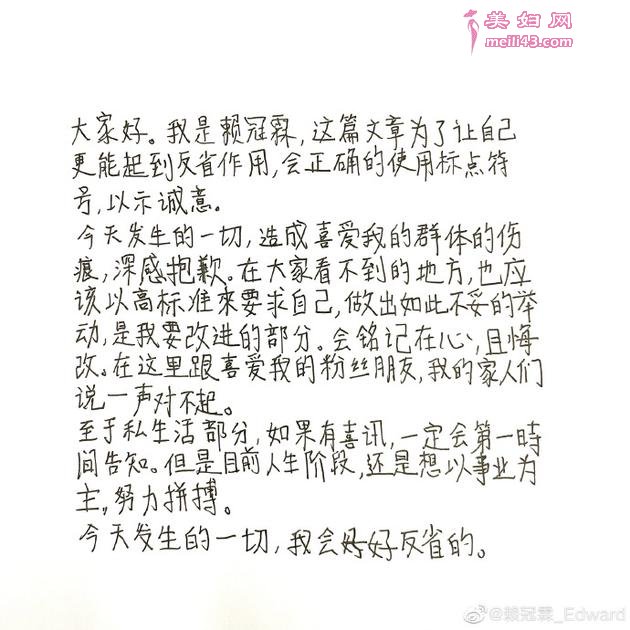 美妇网
meili43.com
大家好。我是赖冠霖,这篇文章为了让自己
更能起到反省作用,会正确的使用标点符
号,以示诚意。
今天发生的一切,造成喜爱我的群体的伤
痕,深感抱歉。在大家看不到的地方,也应
该以高标准來要求自己,做出如此不妥的举
动,是我要改进的部分。会铭记在心,且悔
改。在这里跟喜爱我的粉丝朋友,我的家人们
说一声对不起。
至于私生活部分,如果有喜讯,一定会第一時
间告知。但是目前人生阶段,还是想以事业为
主,努力拼搏。
今天发生的一切,我会好好反省的。
@赖冠霖_Edward